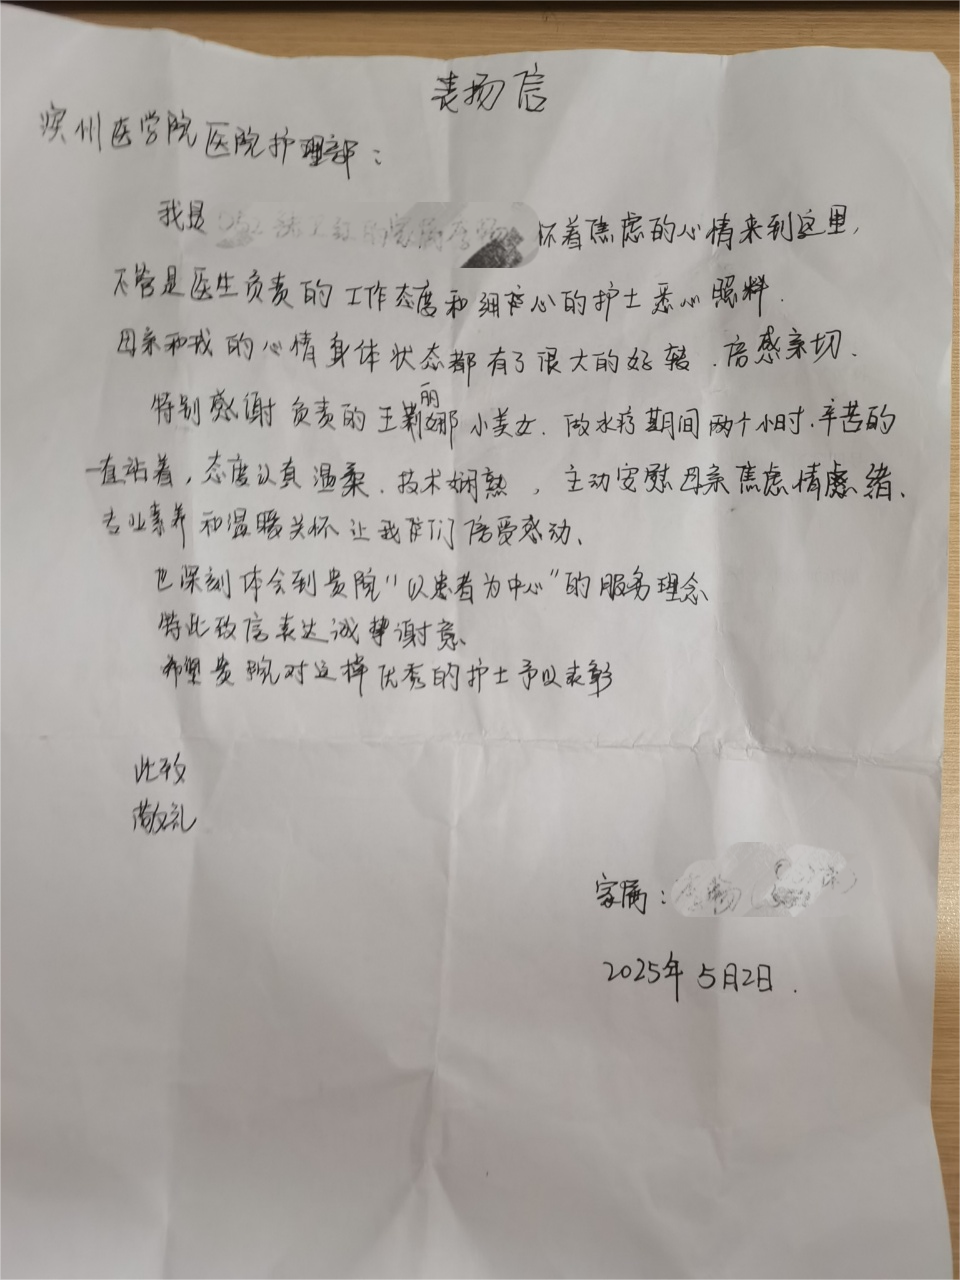 表扬信
滨州医学院医院护理部：
我是 怀着焦虑的心情来到这里，
不管是医生负责的工作态度和细心的护士悉心照料.
母亲和我的心情身体状态都有了很大的好转.倍感亲切.
特别感谢负责的王莉丽娜小美女.做水疗期间两个小时.辛苦的
一直站着，态度认真温柔.技术娴熟，主动安慰母亲焦虑情绪、
专业素养和温暖关怀让我们倍受感动、
也深刻体会到贵院"以患者为中心"的服务理念
特此致信表达诚挚谢意.
希望贵院对这样优秀的护士予以表彰
此致
敬礼
家属：
2025年5月2日.